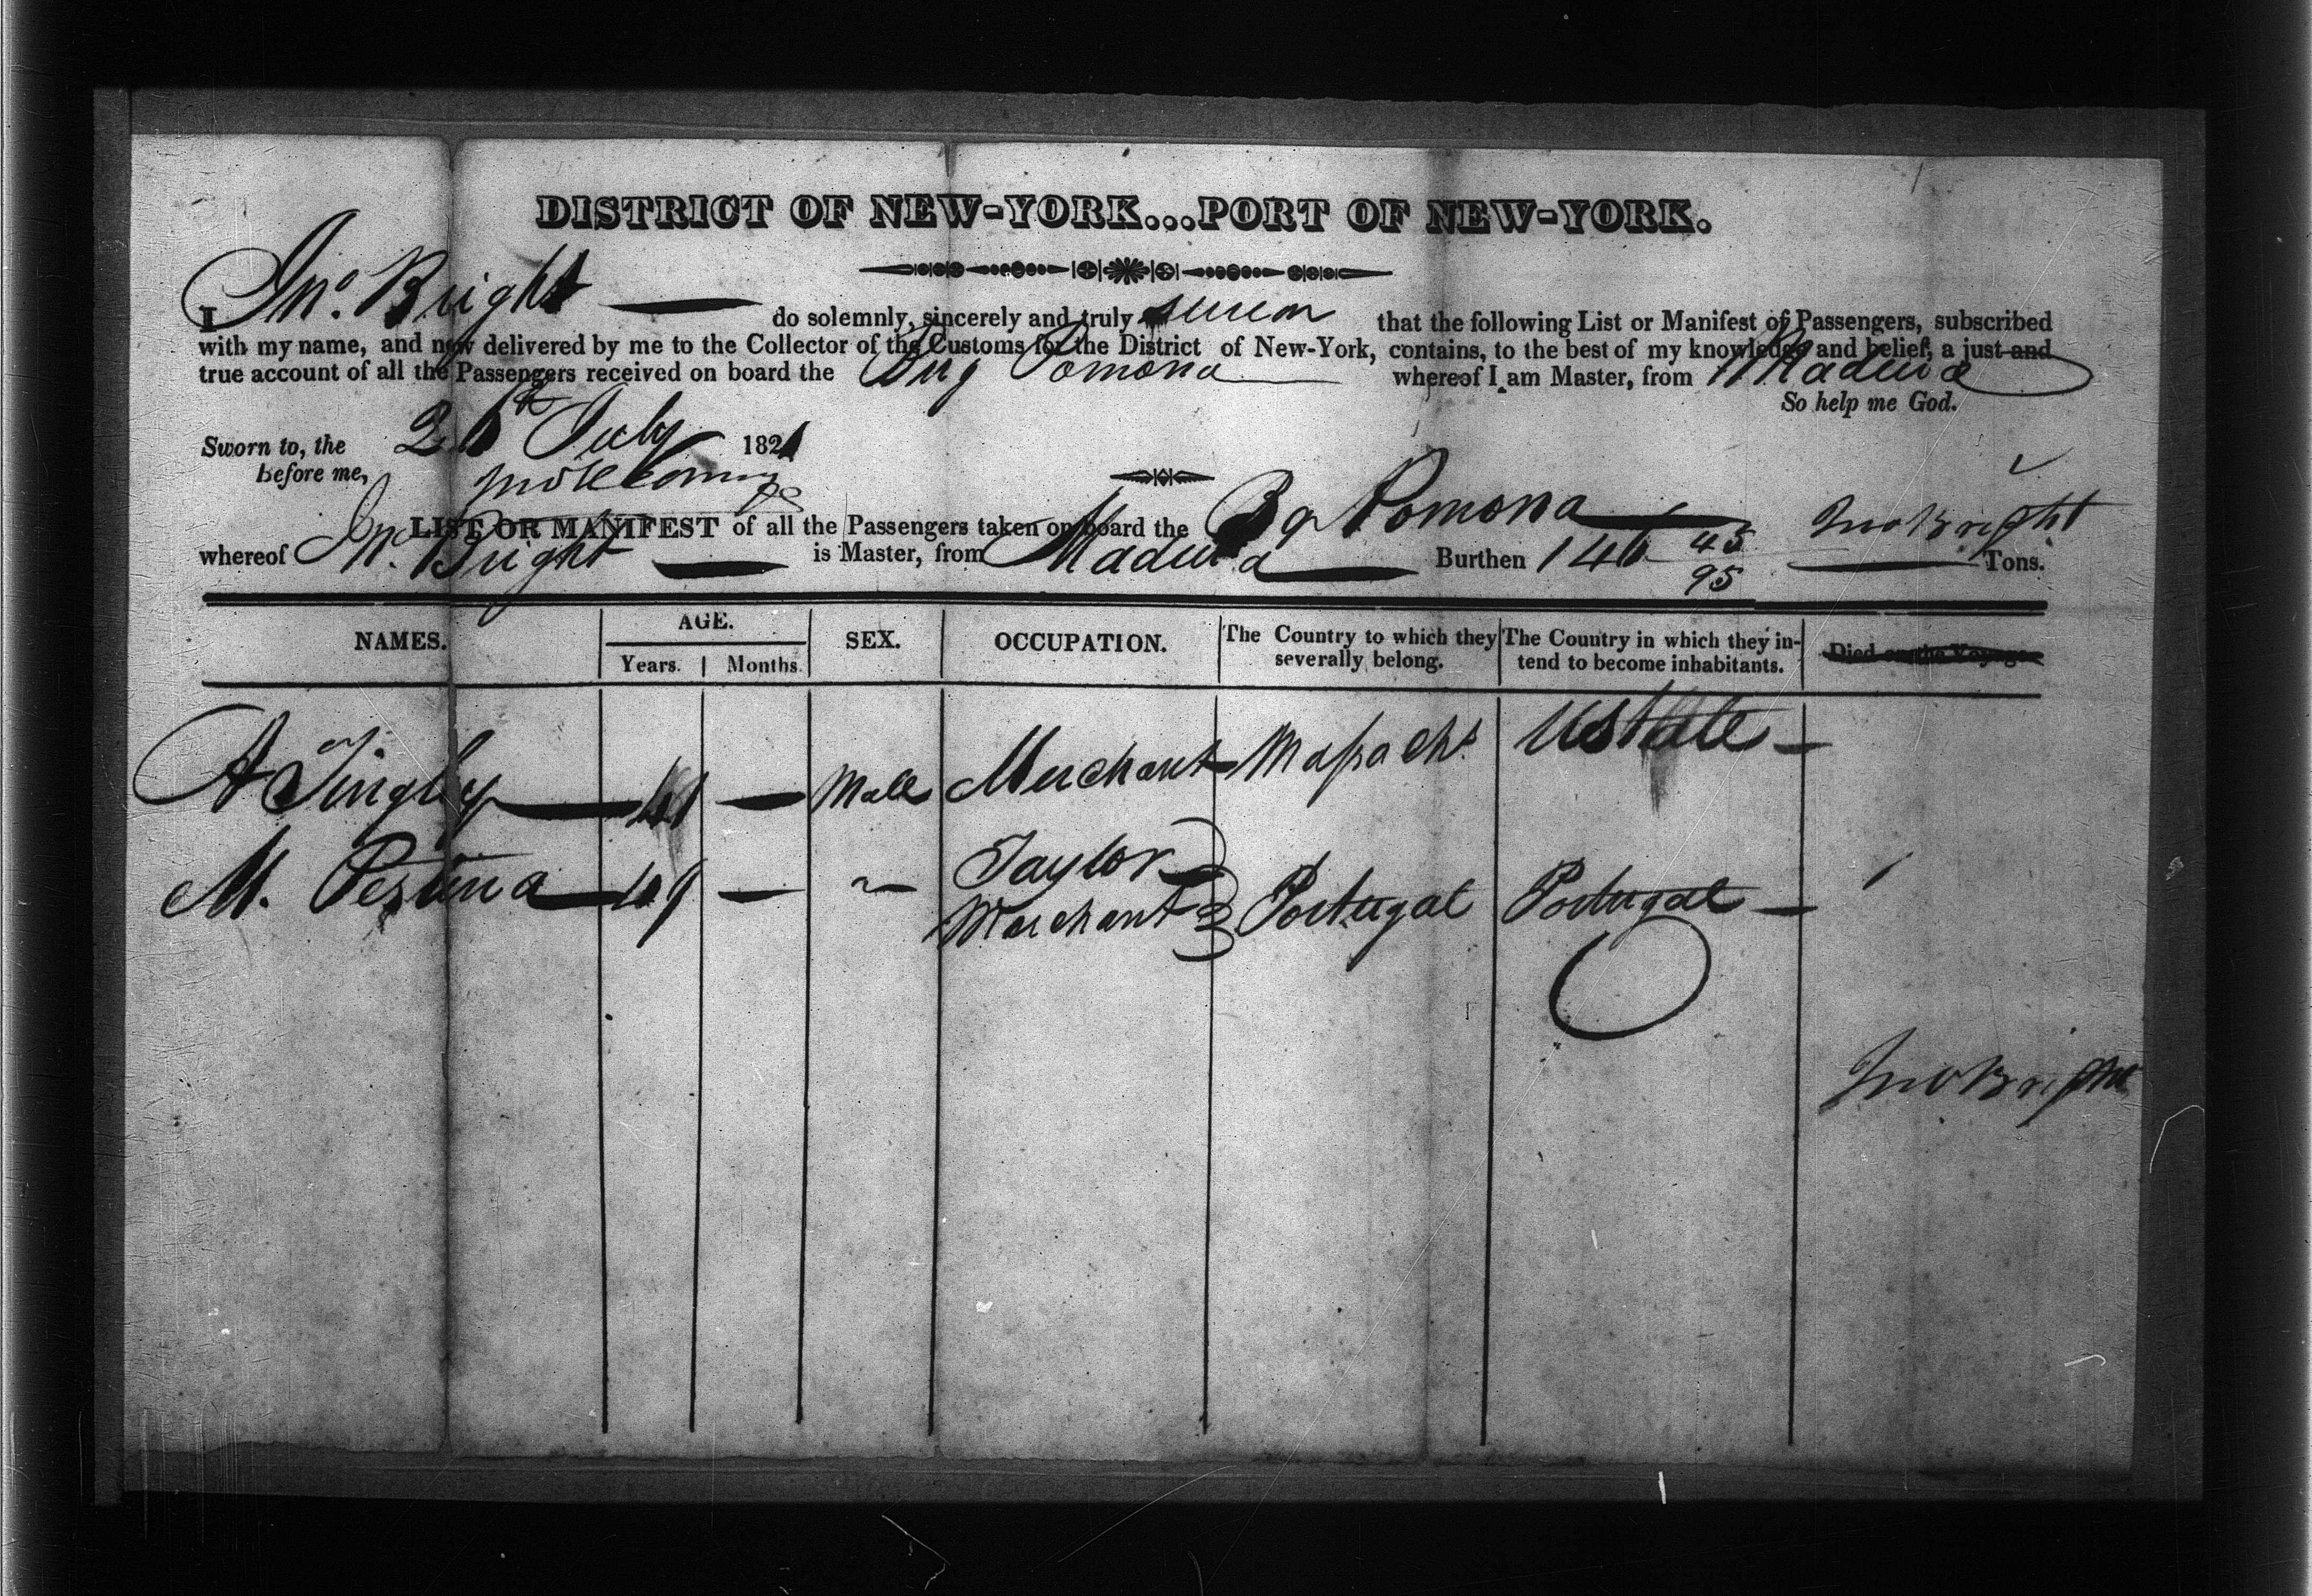 DISTRICT OF NEW-YORK...PORT OF NEW-YORK.
I Jno. Bright do solemnly, sincerely and truly swear that the following List or Manifest of Passengers, subscribed
with my name, and now delivered by me to the Collector of the Customs for the District of New-York, contains, to the best of my knowledge and belief, a just and
true account of all the Passengers received on board the Brig Pomona whereof I am Master, from Madeira
So help me God.
Sworn to, the 26th July 1821
Before me,
Jno Bright
LIST OR MANIFEST of all the Passengers taken on board the Bg Pomona
whereof Jno. Bright is Master, from Madeira Burthen 146 45/95 Tons.
NAMES. AGE. SEX. OCCUPATION. The Country to which they severally belong. The Country in which they intend to become inhabitants. Died on the Voyage.
Years. Months.
A Tingley 41 — Male Merchant Massachts UState
M. Pestana 49 — ~ Taylor Merchant Portugal Portugal
Jno Bright